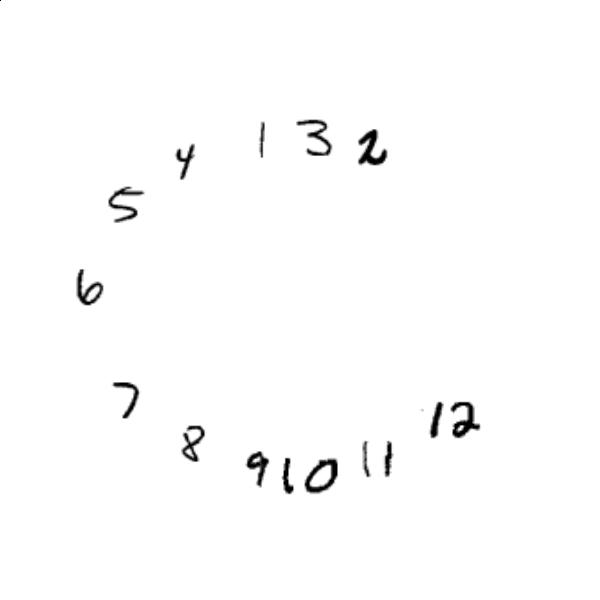 1 3 2
4
5
6
7
8
9 10 11
12